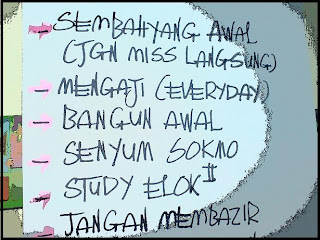 - SEMBAHYANG AWAL
(JGN MISS LANGSUNG)
- MENGAJI (EVERYDAY)
- BANGUN AWAL
- SENYUM SOKMO
- STUDY ELOK II
- JANGAN MEMBAZIR